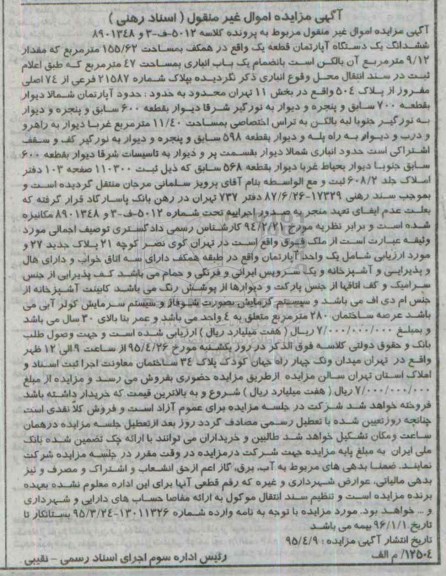 آگهی مزایده اموال غیر منقول ( اسناد رهنی )
آگهی مزایده اموال غیر منقول مربوط به پرونده کلاسه ۵۰۱۲-ف-۳ و ۸۹۰۱۳۴۸
ششدانگ یک دستگاه آپارتمان قطعه یک واقع در همکف بمساحت ۱۵۵/۶۲ مترمربع که مقدار
۹/۱۲ مترمربع آن بالکن است بانضمام یک باب انباری بمساحت ۴۷ مترمربع که طبق اعلام
ثبت در سند انتقال محل وقوع انباری ذکر نگردیده بپلاک شماره ۲۱۵۸۷ فرعی از ۷۴ اصلی
مفروز از پلاک ۵۰۴ واقع در بخش ۱۱ تهران محدود به حدود : حدود آپارتمان شمالا دیوار
بقطعه ۷۰۰ سابق و پنجره و دیوار به نورگیر شرقا دیوار بقطعه ۶۰۰ سابق و پنجره و دیوار
به نورگیر جنوبا لبه بالکن به تراس اختصاصی بمساحت ۱۱/۴۰ مترمربع غربا دیوار به راهرو
و درب و دیوار به راه پله و دیوار بقطعه ۵۹۸ سابق و پنجره و دیوار به نورگیر کف و سقف
اشتراکی است حدود انباری شمالا دیوار بقسمت پر و دیوار به تاسیسات شرقا دیوار بقطعه ۶۰۰
سابق جنوبا دیوار بحیاط غربا دیوار بقطعه ۵۶۸ سابق که ذیل ثبت ۱۱۰۳۰۰ صفحه ۱۰۳ دفتر
املاک جلد ۶۰۸/۲ ثبت و مع الواسطه بنام آقای پرویز سلمانی مرجان منتقل گردیده است و
بموجب سند رهنی ۱۷۳۲۹-۸۷/۶/۲۶ دفتر ۷۳۷ تهران در رهن بانک پاسارگاد قرار گرفته که
بعلت عدم ایفای تعهد منجر به صدور اجراییه تحت شماره ۵۰۱۲-ف-۳ و ۸۹۰۱۳۴۸ مکانیزه
شده است و برابر نظریه مورخ ۹۴/۲/۲۱ کارشناس رسمی دادگستری توصیف اجمالی مورد
وثیقه عبارت است از ملک فوق واقع است در تهران کوی نصر کوچه ۲۱ پلاک جدید ۲۷ و
مورد ارزیابی شامل یک واحد آپارتمان واقع در طبقه همکف دارای سه اتاق خواب و دارای هال
و پذیرایی و آشپزخانه و یک سرویس ایرانی و فرنگی و حمام می باشد کف پذیرایی از جنس
سرامیک و کف اتاقها از جنس پارکت و دیوارها از پوشش رنگ می باشد کابینت آشپزخانه از
جنس ام دی اف می باشد و سیستم گرمایش بصورت شوفاژ و سیستم سرمایش کولر آبی می
باشد عرصه ساختمان ۲۸۰ مترمربع متعلق به ۴ واحد می باشد و عمر بنا بالای ۳۰ سال می باشد
و بمبلغ ۷/۰۰۰/۰۰۰/۰۰۰ ریال ( هفت میلیارد ریال ) ارزیابی شده است و جهت وصول طلب
بانک و حقوق دولتی کلاسه فوق الذکر در روز یکشنبه مورخ ۹۵/۴/۲۶ از ساعت ۹ الی ۱۲ ظهر
واقع در تهران میدان ونک چهار راه جهان کودک پلاک ۳۴ ساختمان معاونت اجرا ثبت اسناد و
املاک استان تهران سالن مزایده ازطریق مزایده حضوری بفروش می رسد و مزایده از مبلغ
۷/۰۰۰/۰۰۰/۰۰۰ ریال ( هفت میلیارد ریال ) شروع و به بالاترین قیمت که خریدار داشته باشد
فروخته خواهد شد شرکت در جلسه مزایده برای عموم آزاد است و فروش کلا نقدی است
چنانچه روزتعیین شده با تعطیل رسمی مصادف گردد روز بعد ازتعطیل جلسه مزایده درهمان
ساعت ومکان تشکیل خواهد شد طالبین و خریداران می توانند با ارائه چک تضمین شده بانک
ملی ایران به مبلغ پایه مزایده جهت شرکت درمزایده در وقت مقرر در جلسه مزایده شرکت
نمایند. ضمنا بدهی های مربوط به آب، برق، گاز اعم ازحق انشعاب و اشتراک و مصرف و نیز
بدهی مالیاتی، عوارض شهرداری و غیره که رقم قطعی آنها برای این اداره معلوم نشده بعهده
برنده مزایده است و تنظیم سند انتقال موکول به ارائه مفاصا حساب های دارایی و شهرداری
و … خواهد بود. مورد مزایده با توجه به نامه وارده شماره ۱۳۰۱۱۳۲۶-۹۵/۳/۲۴ بستانکار تا
تاریخ ۹۶/۱/۱ بیمه می باشد
تاریخ انتشار آگهی مزایده : ۹۵/۴/۹
۱۲۵۰۴/ م الف رئیس اداره سوم اجرای اسناد رسمی - نقیبی